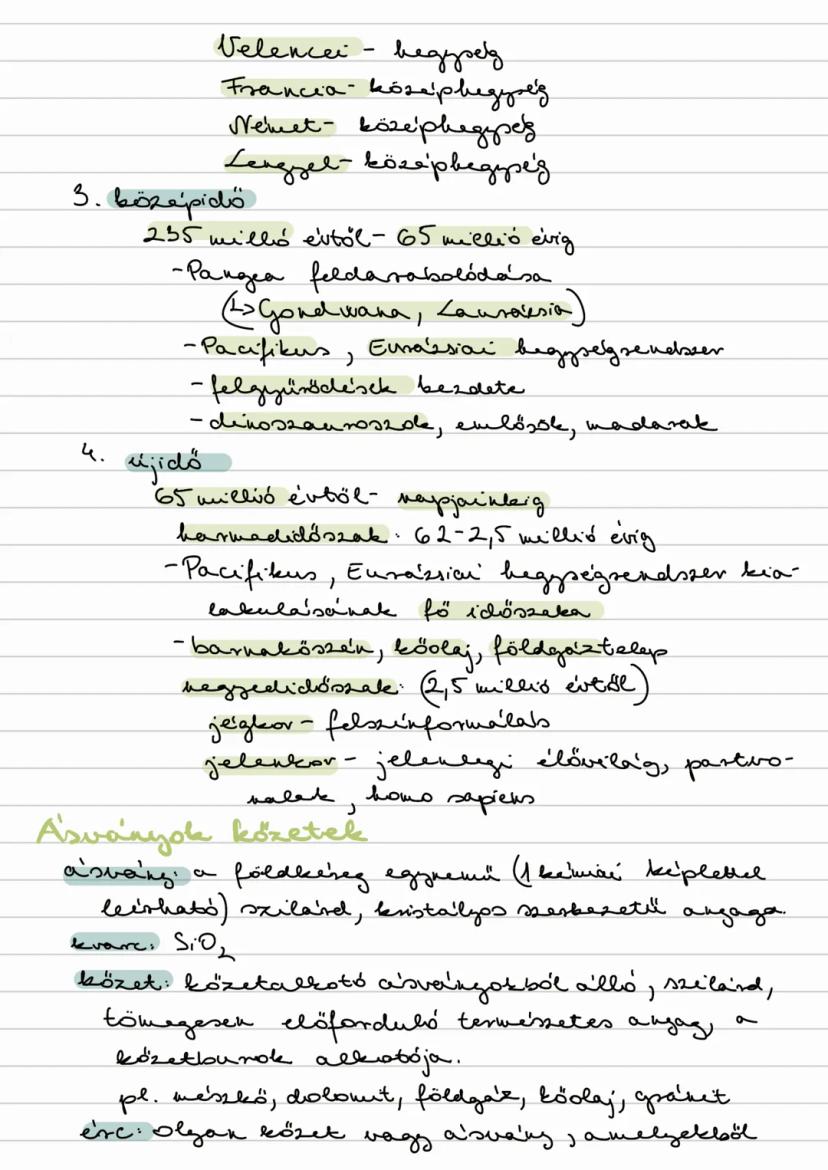 Velencei - hegység
Francia- középhegység
Német- középhegység
Lengyel- középhegység
3. középidő
235 millió évtől- 65 millió évig
-Pangea feldarabolódása
(↳ Gondwana, Laurázsia)
-Pacifikus, Eurázsiai hegységrendszer
-felgyűrődések kezdete
-dinoszauroszok, emlősök, madarak
4. újidő
65 millió évtől- napjainkig
harmadidőszak: 62-2,5 millió évig
-Pacifikus, Eurázsiai hegységrendszer kia-
lakulásának fő időszaka
- barnakőszén, kőolaj, földgáztelep
negyedidőszak: (2,5 millió évtől)
jégkor- felszínformálás
jelenkor - jelenlegi élővilág, partvo-
nalak, homo sapiens
Ásványok kőzetek
ásvány: a földkéreg egynemű (1 kémiai képlettel
leírható) szilárd, kristályos szerkezetű anyaga.
kvarc: SiO₂
kőzet: kőzetalkotó ásványokból álló, szilárd,
tömegesen előforduló természetes anyag, a
kőzetburok alkotója.
pl. mészkő, dolomit, földgáz, kőolaj, gránit
érc: olyan kőzet vagy ásvány, amelyekből